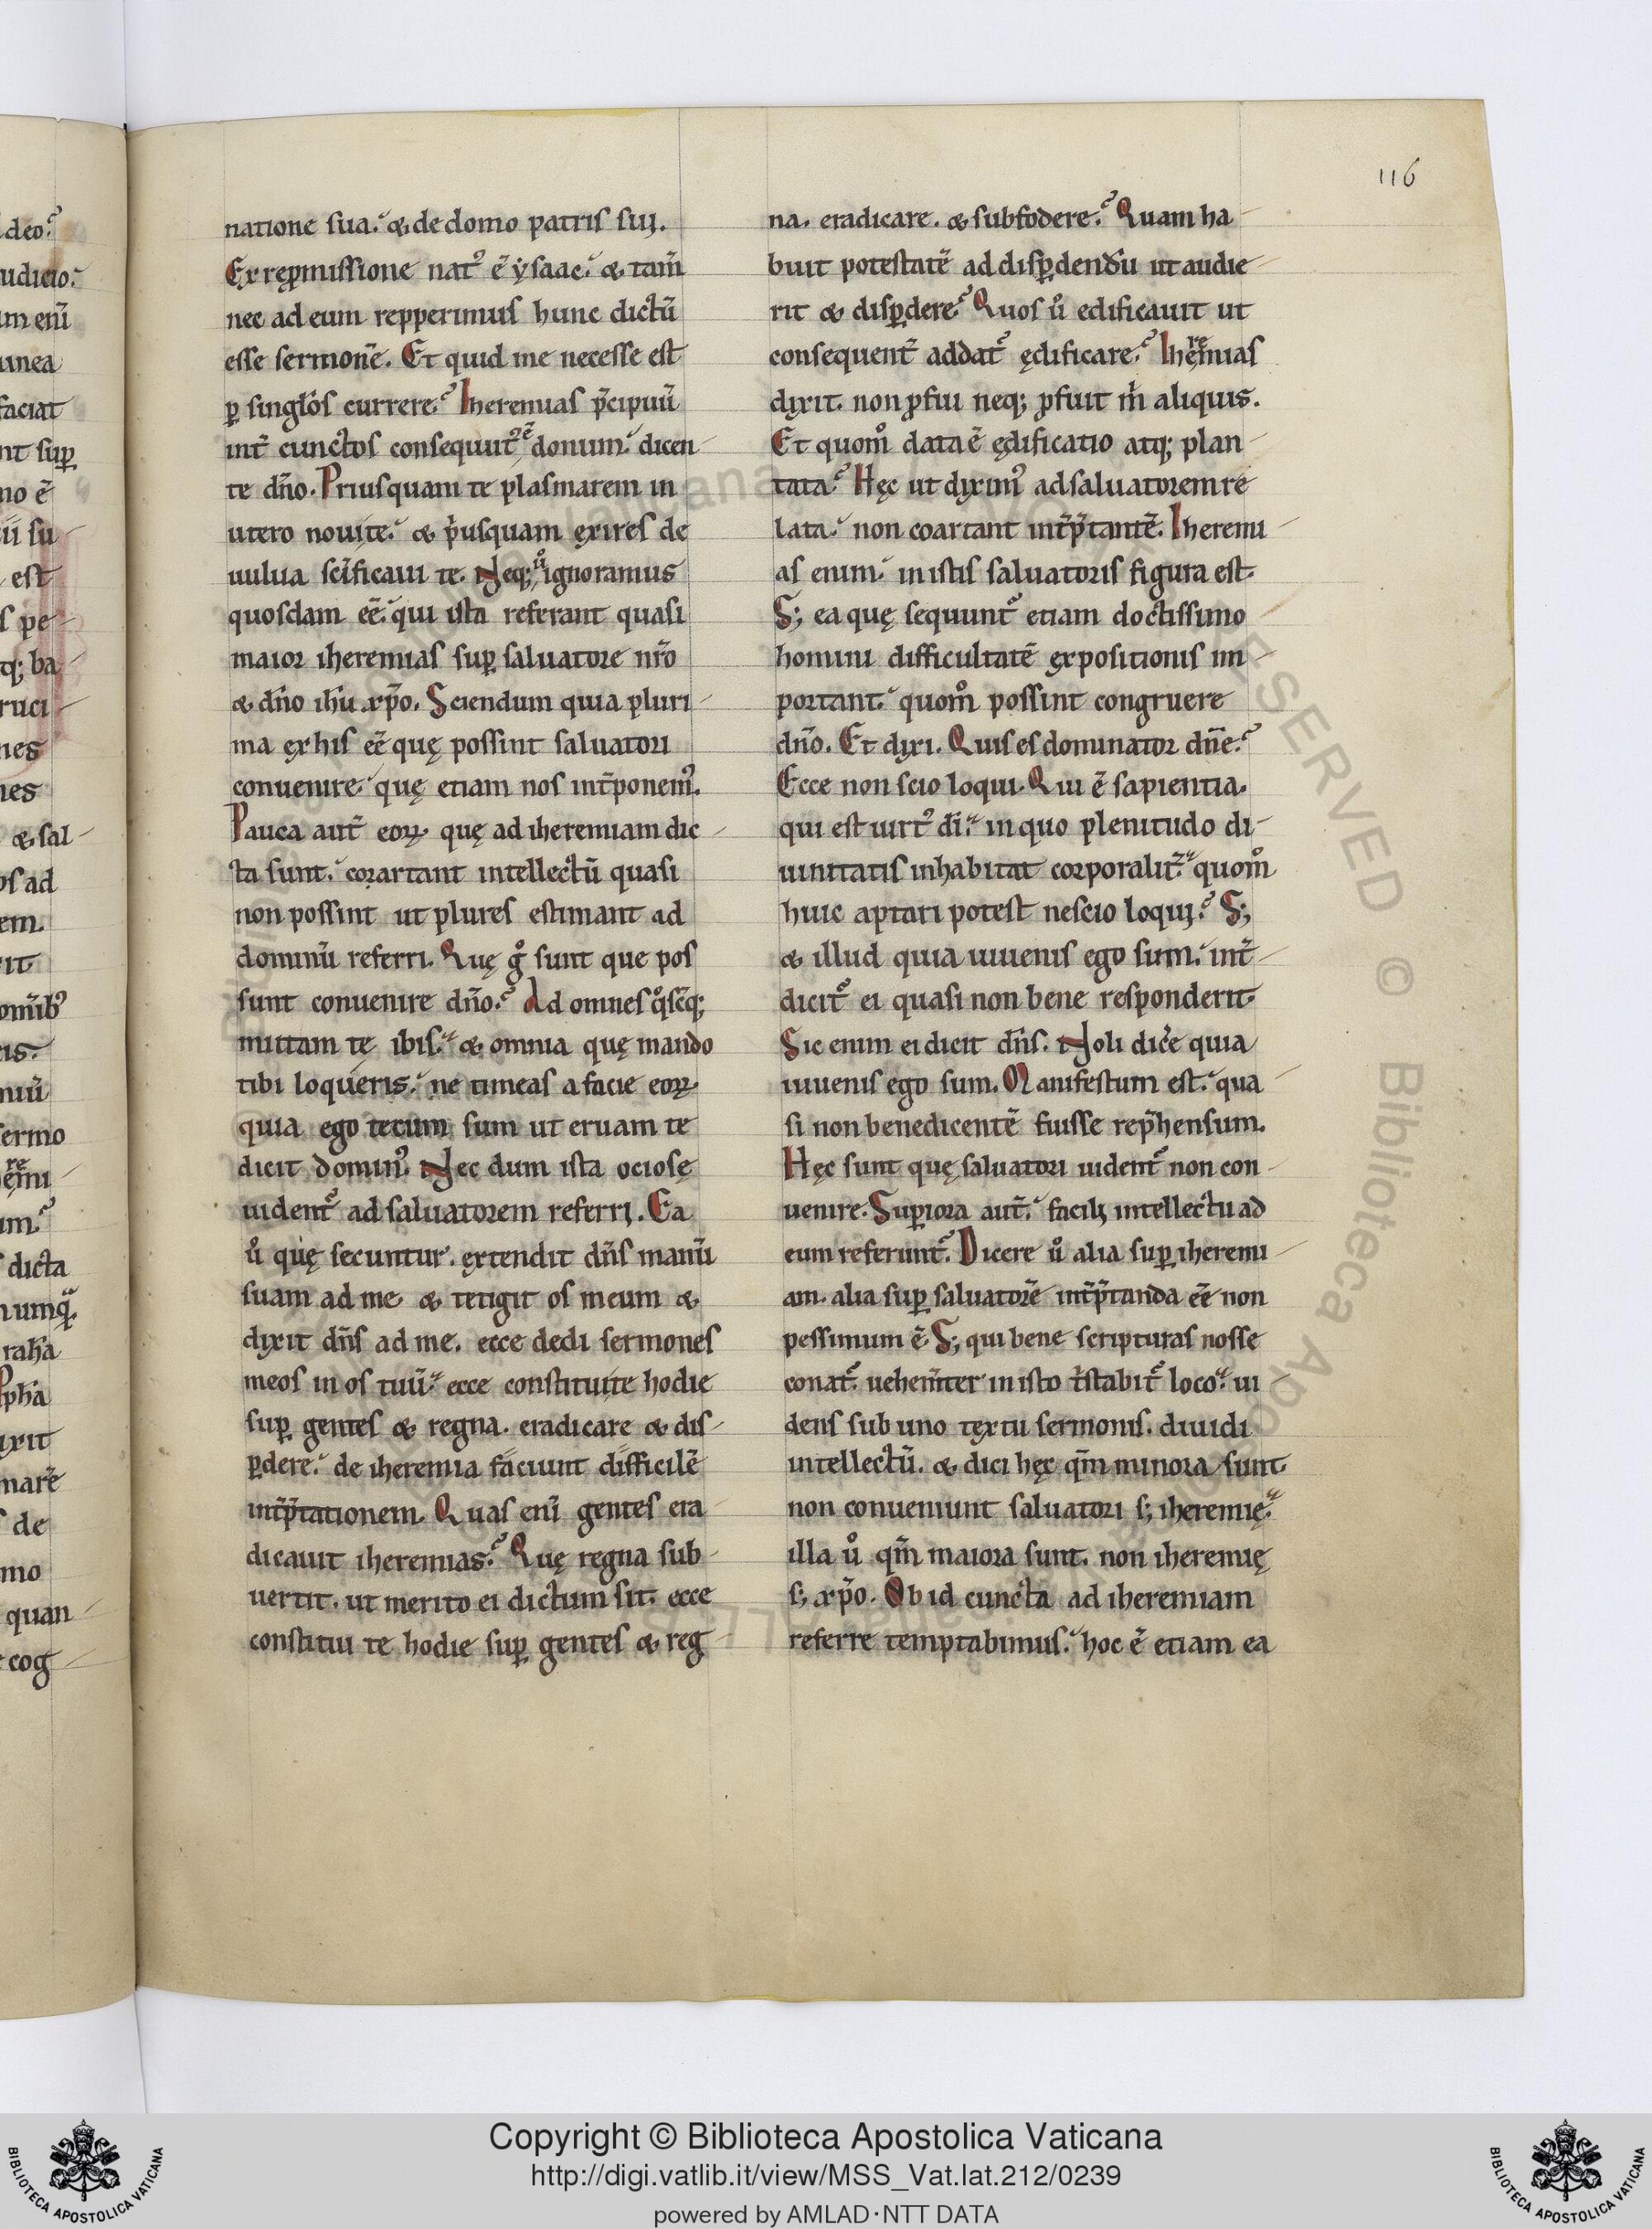 116
natione sua. & de domo patris suı.
Ex rep̄missione nat᾽ ē ẏsaac. & tam̄
nec ad eum repperimus hunc dictū
esse sermonē. Et quid me necesse est
ꝑ singlos currere? Iheremias p̄cipuū
int̄ cunctos consequut᾽ ē donum. dicen
te dn̄o. Priusquam te plasmarem in
utero nouı te. & p̓usquam exires de
uulua sc̄ificaui te. Neq; u̾ ignoramus
quosdam eē. qui ista referant quasi
maior iheremias suꝑ saluatore nr̄o
& dn̄o ih̄u xp̄o. Sciendum quia pluri
ma ex his eē quę possint saluatori
conuenire. quę etiam nos int̄ponem᾽.
Pauca aut̄ eoꝝ quę ad iheremiam dic
ta sunt. coartant intellectū quasi
non possint ut plures estimant ad
dominū referri. Quę g̊ sunt que pos
sunt conuenire dn̄o? Ad omnes q̊scūq;
mittam te ibis. & omnia quę mando
tibi loqueris. ne timeas a facie eoꝝ
quia ego tecum sum ut eruam te
dicit domin᾽. Nec dum ista ociosę
uident᾽ ad saluatorem referri. Ea
u̾ quę secuntur. extendit dn̄s manū
suam ad me & tetigit os meum &
dixit dn̄s ad me. ecce dedi sermones
meos in os tuū. ecce constitui te hodie
suꝑ gentes & regna. eradicare & dis
ꝑdere. de iheremia faciunt difficilē
int̄p̄tationem. Quas enī gentes era
dicauit iheremias? Quę regna sub
uertit. ut merito ei dictum sit. ecce
constitui te hodie suꝑ gentes & reg
na. eradicare. & subfodere? Quam ha
buit potestatē ad disꝑdendū ut audie
rit & disꝑdere? Quos u̾ edificauit ut
consequent̄ addat᾽ ędificare? Iheremias
dixit. non ꝓfui neq; ꝓfuit m̓ aliquis.
Et quom̊ data ē ędificatio atq; plan
tata? Hęc ut dixim᾽ ad saluatorem re
lata. non coartant int̄p̄tantē. Iheremi
as enim. in istis saluatoris figura est.
S; ea quę sequunt᾽ etiam doctissimo
homini difficultatē expositionis im
portant. quom̊ possint congruere
dn̄o. Et dixi. Quis es dominator dn̄e?
Ecce non scio loqui. Qui ē sapientia.
qui est uirt᾽ dī. in quo plenitudo di
uinitatis inhabitat corporalit̄. quom̊
huic aptari potest nescio loqui? S;
& illud quia iuuenis ego sum. int̄
dicit᾽ ei quasi non bene responderit.
Sic enim ei dicit dn̄s. Noli dic̓e quia
iuuenis ego sum. Manifestum est. qua
si non benedicentē fuisse rep̄hensum.
Hęc sunt quę saluatori uident᾽ non con
uenire. Suꝑiora aut̄. facili intellectu ad
eum referunt᾽. Dicere u̾ alia suꝑ iheremi
am. alia suꝑ saluatorē int̄p̄tanda eē non
pessimum ē. S; qui bene scripturas nosse
conat᾽. uehem̄ter in isto t̓stabit᾽ loco. ui
dens sub uno textu sermonis. diuidi
intellectū. & dici hęc qm̄ minora sunt
non conueniunt saluatori s; iheremię.
illa u̾ qm̄ maiora sunt. non iheremię
s; xp̄o. Ob id cuncta ad iheremiam
referre temptabimus. hoc ē etiam ea
Copyright © Biblioteca Apostolica Vaticana
http://digi.vatlib.it/view/MSS_Vat.lat.212/0239
powered by AMLAD·NTT DATA
BIBLIOTECA APOSTOLICA VATICANA
BIBLIOTECA APOSTOLICA VATICANA